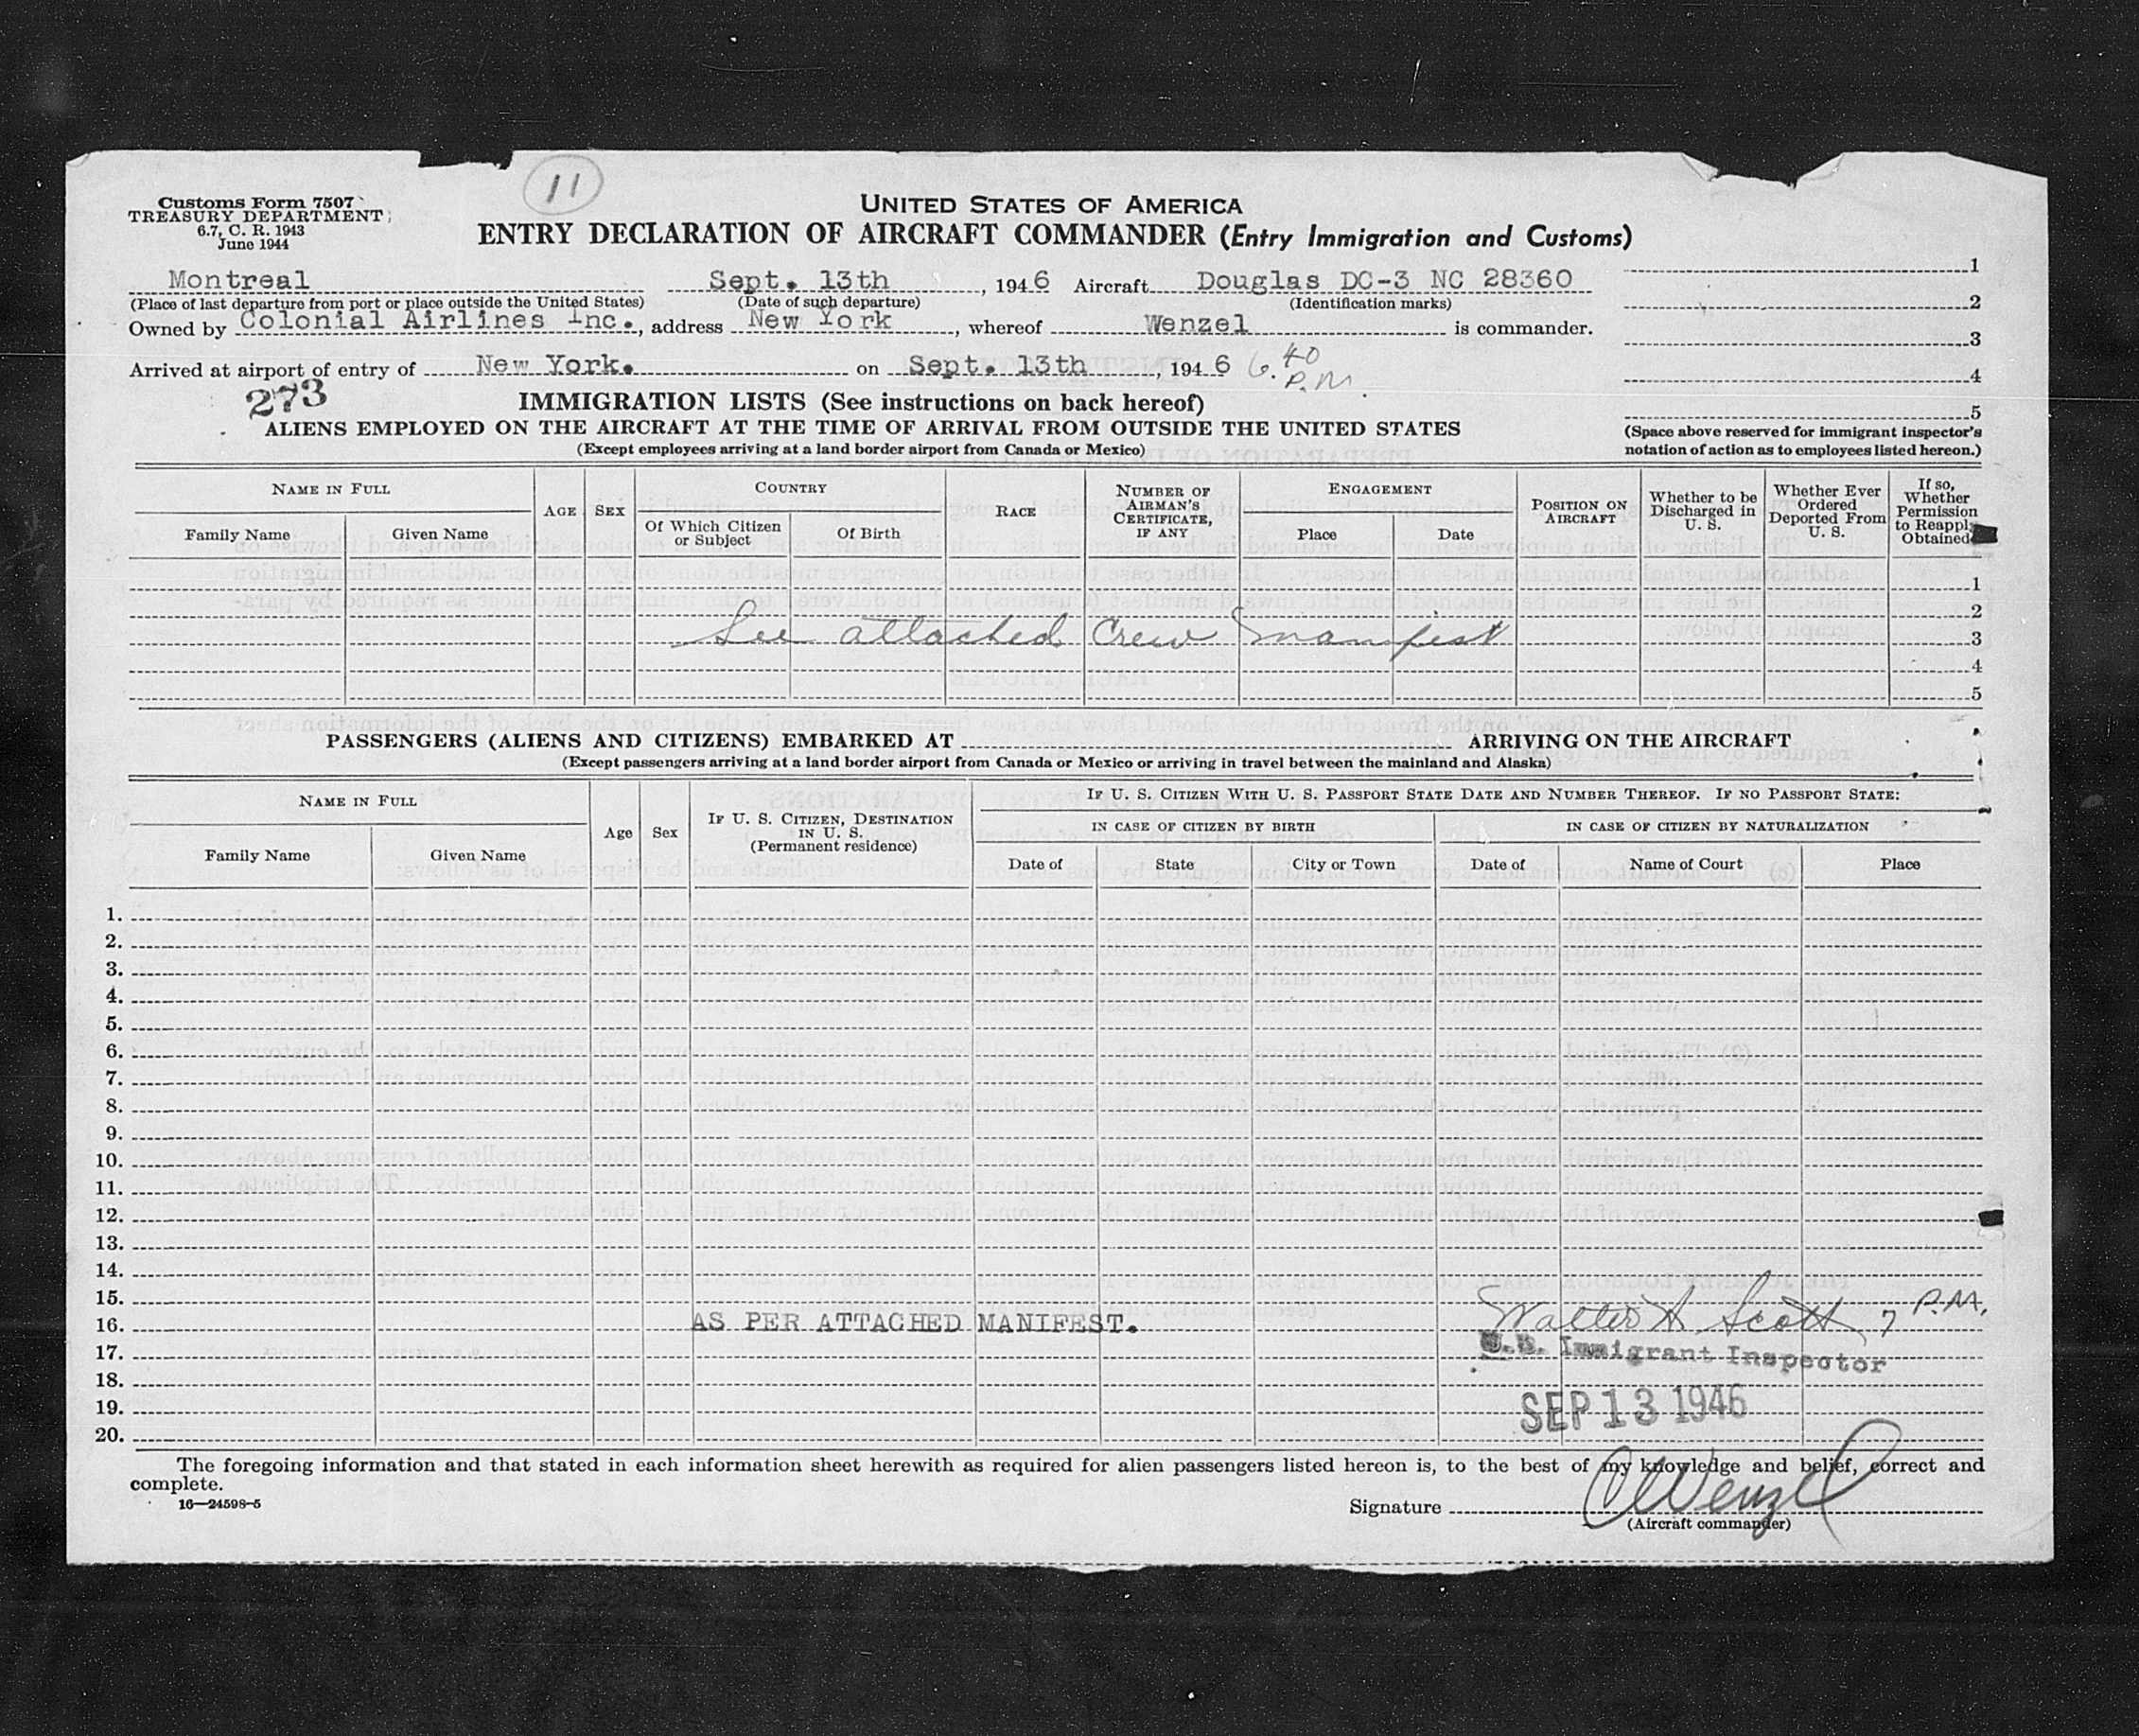 11
Customs Form 7507
TREASURY DEPARTMENT
6.7, C. R. 1943
June 1944
UNITED STATES OF AMERICA
ENTRY DECLARATION OF AIRCRAFT COMMANDER (Entry Immigration and Customs)
Montreal Sept. 13th, 1946 Aircraft Douglas DC-3 NC 28360
(Place of last departure from port or place outside the United States) (Date of such departure) (Identification marks)
Owned by Colonial Airlines Inc., address New York, whereof Wenzel is commander.
Arrived at airport of entry of New York. on Sept. 13th, 1946 6.40 P.M
1
2
3
4
5
(Space above reserved for immigrant inspector's
notation of action as to employees listed hereon.)
273
IMMIGRATION LISTS (See instructions on back hereof)
ALIENS EMPLOYED ON THE AIRCRAFT AT THE TIME OF ARRIVAL FROM OUTSIDE THE UNITED STATES
(Except employees arriving at a land border airport from Canada or Mexico)
NAME IN FULL
Family Name
Given Name
AGE
SEX
COUNTRY
Of Which Citizen
or Subject
Of Birth
RACE
NUMBER OF
AIRMAN'S
CERTIFICATE,
IF ANY
ENGAGEMENT
Place
Date
POSITION ON
AIRCRAFT
Whether to be
Discharged in
U. S.
Whether Ever
Ordered
Deported From
U. S.
If so,
Whether
Permission
to Reapply
Obtained
1
2
See attached Crew Manifest 3
4
5
PASSENGERS (ALIENS AND CITIZENS) EMBARKED AT ARRIVING ON THE AIRCRAFT
(Except passengers arriving at a land border airport from Canada or Mexico or arriving in travel between the mainland and Alaska)
NAME IN FULL
Family Name
Given Name
Age
Sex
IF U. S. CITIZEN, DESTINATION
IN U. S.
(Permanent residence)
IF U. S. CITIZEN WITH U. S. PASSPORT STATE DATE AND NUMBER THEREOF. IF NO PASSPORT STATE:
IN CASE OF CITIZEN BY BIRTH
IN CASE OF CITIZEN BY NATURALIZATION
Date of
State
City or Town
Date of
Name of Court
Place
1.
2.
3.
4.
5.
6.
7.
8.
9.
10.
11.
12.
13.
14.
15.
16. AS PER ATTACHED MANIFEST. Walter A Scott 7 P.M.
17. U.S. Immigrant Inspector
18.
19. SEP 13 1946
20.
The foregoing information and that stated in each information sheet herewith as required for alien passengers listed hereon is, to the best of my knowledge and belief, correct and
complete.
16—24598-5
Signature C Wenzel
(Aircraft commander)